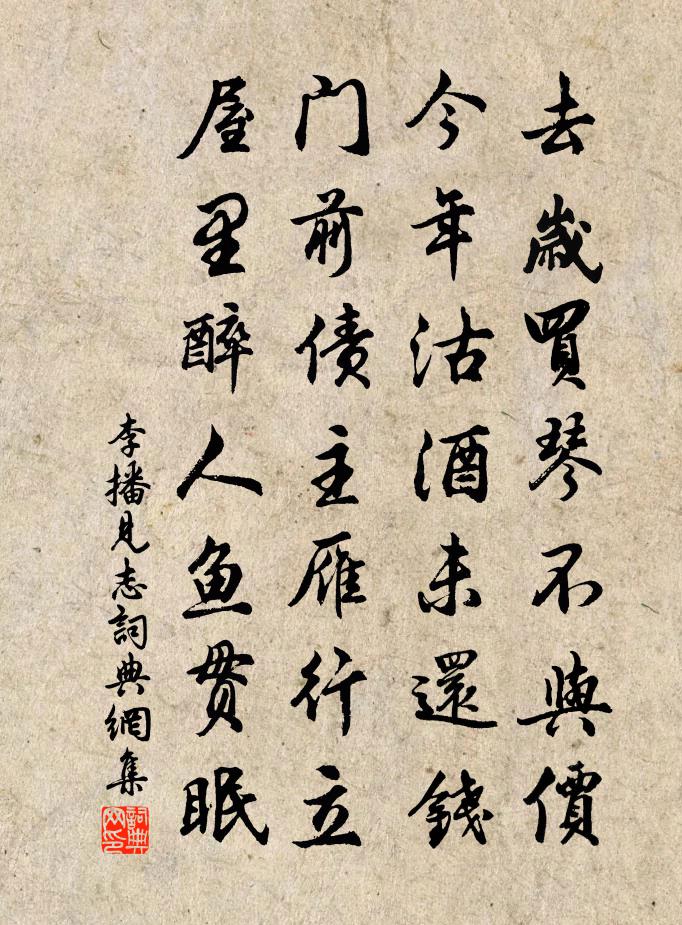 去歲買琴不與價
今年沽酒未還錢
門前債主雁行立
屋里醉人魚貫眠
李播見志詞典網集
詞典網印